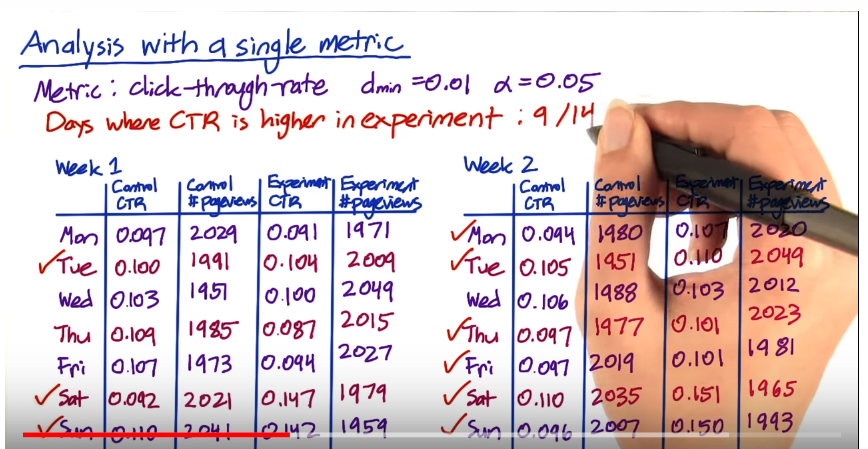 Analysis with a single metric
Metric: click-through-rate dmin = 0.01 α = 0.05
Days where CTR is higher in experiment: 9/14
Week 1
Control CTR Control #pageviews Experiment CTR Experiment #pageviews
Mon 0.097 2029 0.091 1971
✓Tue 0.100 1991 0.104 2009
Wed 0.103 1951 0.100 2049
Thu 0.109 1985 0.087 2015
Fri 0.107 1973 0.094 2027
✓Sat 0.092 2021 0.147 1979
✓Sun 0.110 2041 0.142 1959
Week 2
Control CTR Control #pageviews Experiment CTR Experiment #pageviews
✓Mon 0.094 1980 0.107 2020
✓Tue 0.105 1951 0.110 2049
Wed 0.106 1988 0.103 2012
✓Thu 0.097 1977 0.101 2023
✓Fri 0.097 2019 0.101 1981
✓Sat 0.110 2035 0.151 1965
✓Sun 0.096 2007 0.150 1993